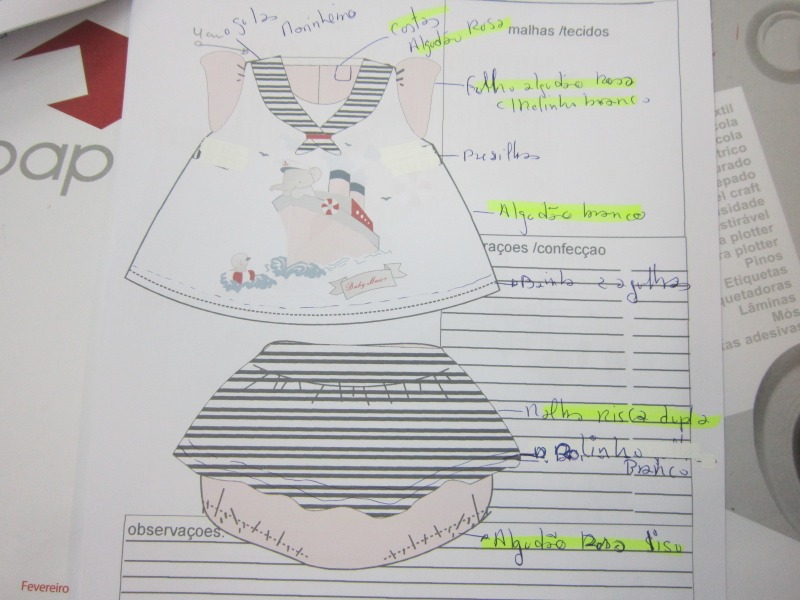 golas
Marinheiro
Costas
Algodão Rosa
malhas /tecidos
Folho algodão Rosa
c/ Molinho branco
Presilhas
Algodão branco
rações /confecçao
Bainha 2 agulhas
Baby Marine
Malha risca dupla
Bolinho
Branco
observaçoes:
Algodão Rosa liso
Fevereiro
pap
xtil
cola
trico
urado
epado
el craft
sidade
stirável
a plotter
ra plotter
Pinos
Etiquetas
quetadoras
Lâminas
Mós
as adesivas